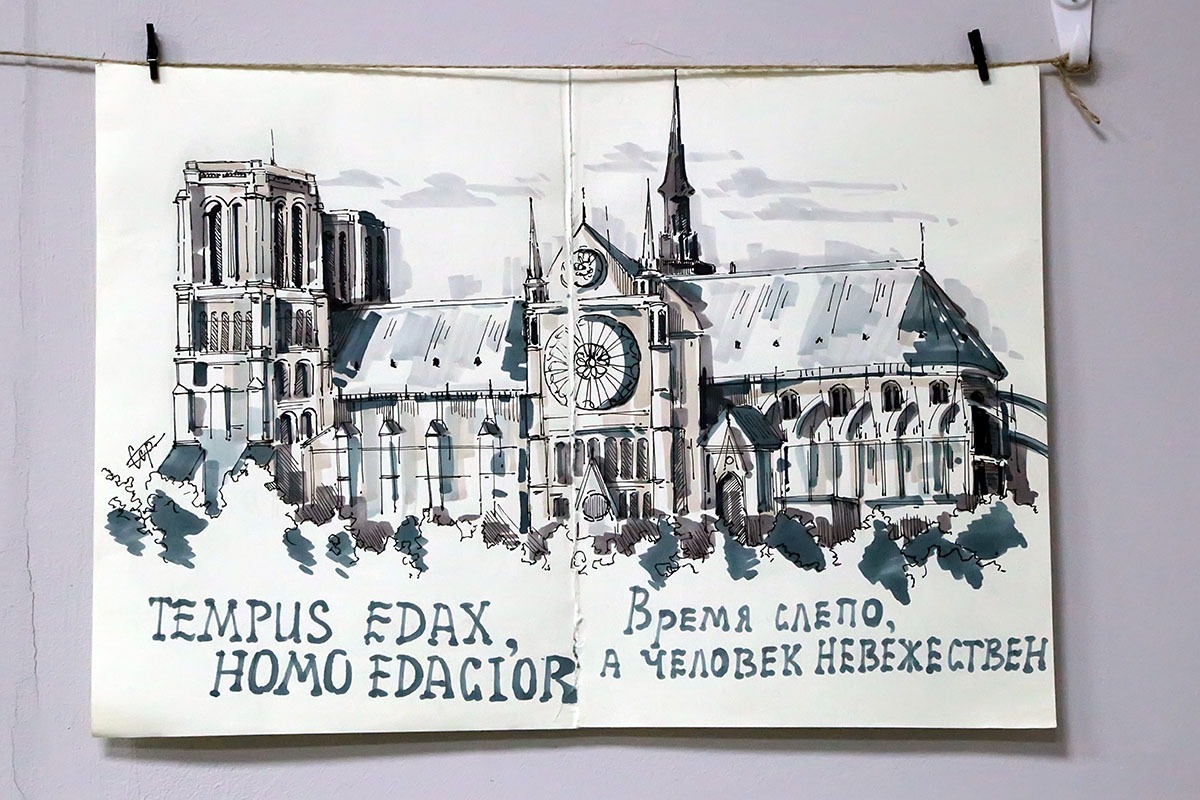 TEMPUS EDAX,
HOMO EDACIOR
Время слепо,
а человек невежествен